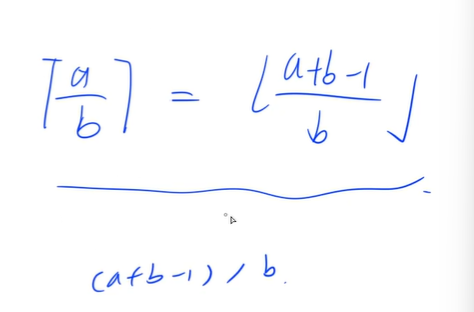 ⌈a/b⌉ = ⌊(a+b-1)/b⌋
(a+b-1) / b.